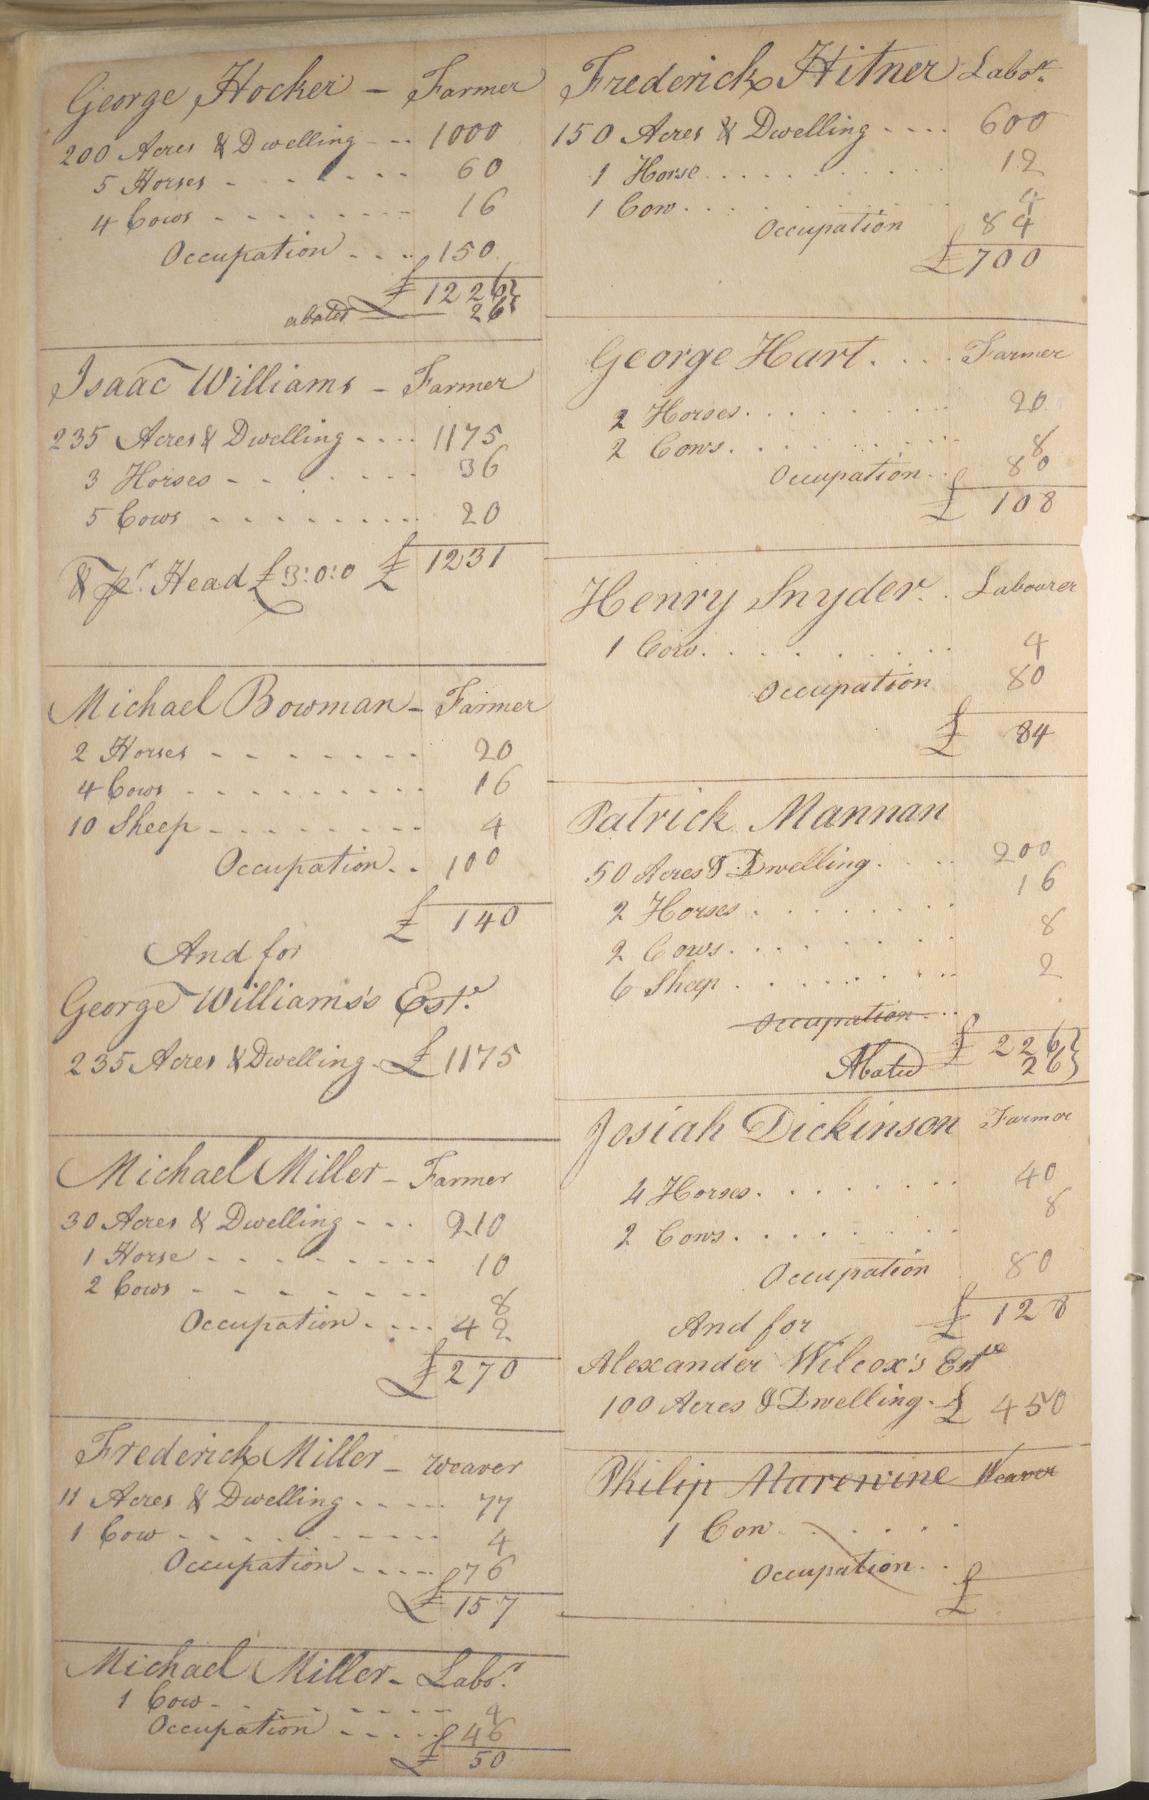 George Hocker - Farmer
200 Acres & Dwelling - - - 1000
5 Horses - - - - - - 60
4 Cows - - - - - - - - 16
Occupation - - - - 150
£ 1226}
abated 26}
Isaac Williams - Farmer
235 Acres & Dwelling - - - - 1175
3 Horses - - - - - - 36
5 Cows - - - - - - - - - 20
& pr. Head £3:0:0 £ 1231
Michael Bowman - Farmer
2 Horses - - - - - - - 20
4 Cows - - - - - - - - - 16
10 Sheep - - - - - - - - 4
Occupation - - 100
£ 140
And for
George Williams's Este.
235 Acres & Dwelling - £ 1175
Michael Miller - Farmer
30 Acres & Dwelling - - - 210
1 Horse - - - - - - - - - 10
2 Cows - - - - - - - 8
Occupation - - - - 42
£ 270
Frederick Miller - Weaver
11 Acres & Dwelling - - - - - 77
1 Cow - - - - - - - - - - 4
Occupation - - - - - 76
£ 157
Michael Miller - Labor.
1 Cow - - - - - - - - 4
Occupation - - - - - £ 46
£ 50
Frederick Hitner Labor.
150 Acres & Dwelling - - - - 600
1 Horse . . . . . . . . . . . 12
1 Cow . . . . . . . . . . 4
Occupation 84
£ 700
George Hart . . . . Farmer
2 Horses . . . . . . . . . 20
2 Cows . . . . . . . . . 8
Occupation . . 80
£ 108
Henry Snyder . . Labourer
1 Cow . . . . . . . . . 4
Occupation 80
£ 84
Patrick Mannan
50 Acres & Dwelling . . . . 200
2 Horses . . . . . . . . 16
2 Cows . . . . . . . . . 8
6 Sheep . . . . . . . . 2
Occupation . . .
£ 226}
Abated 26}
Josiah Dickinson Farmer
4 Horses . . . . . . . . 40
2 Cows . . . . . . . . 8
Occupation 80
And for £ 128
Alexander Wilcox's Este
100 Acres & Dwelling . £ 450
Philip Marewine Weaver
1 Cow . . . . . .
Occupation . .
£